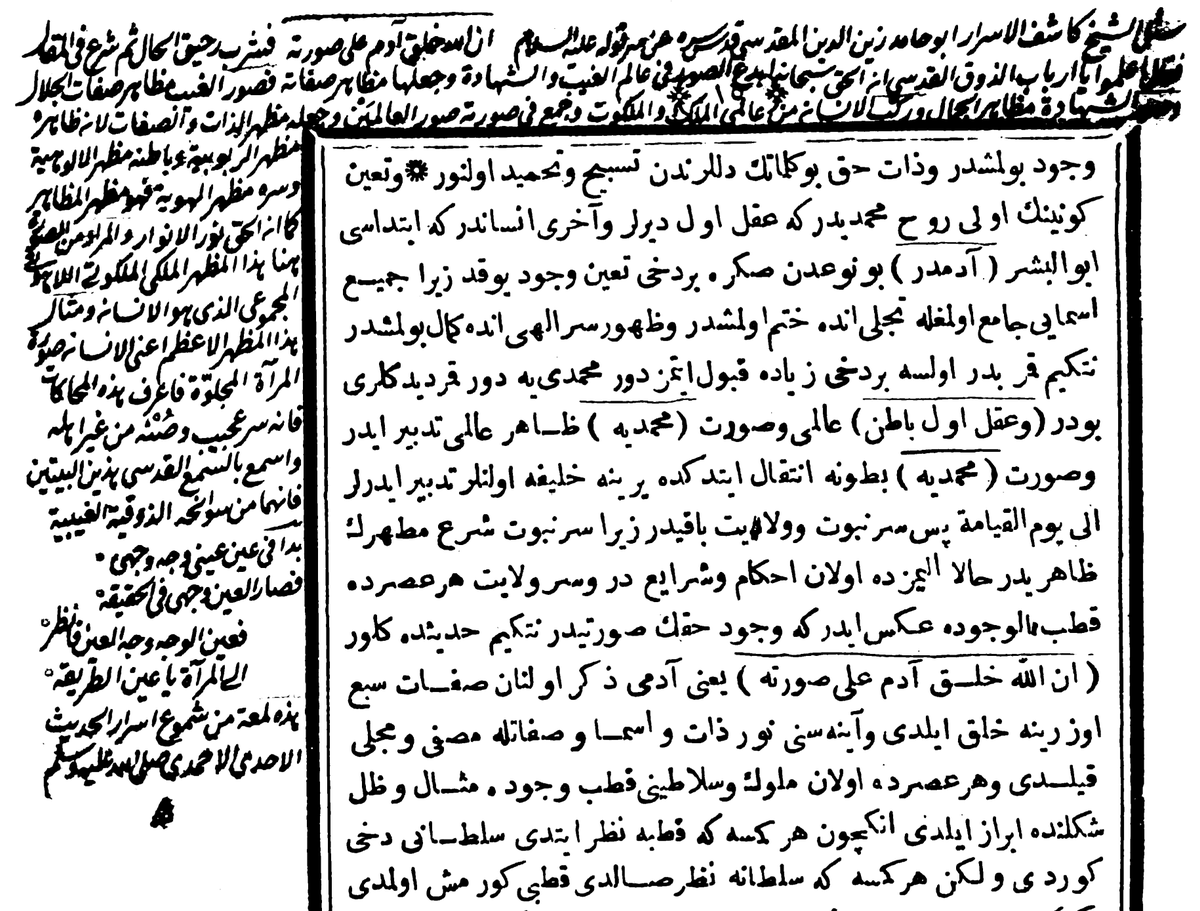 سئل الشيخ كاشف الاسرار ابو حامد زين الدين المقدسى قدس سره عن سر قوله عليه السلام ان الله خلق آدم على صورته فشرب رحيق الحال ثم شرع فى المقال
فقال اعلموا يا ارباب الذوق القدسى انه الحق سبحانه ابدع الصور فى عالم الغيب والشهادة وجعلها مظاهر صفاته فصور الغيب مظاهر صفات الجلال
وصور الشهادة مظاهر الجمال وركب الانسانه من عالمى الملك والملكوت وجمع فى صورته صور العالمين وجعله مظهر الذات والصفات لانه ظاهره
مظهر الربوبية وباطنه مظهر الالوهية
وسره مظهر الهوية فهو مظهر المظاهر
كما انه الحق نور الانوار والمراد من الصورة
هنا هذا المظهر الملكى الملكوتى اللاهوتى
المجموعى الذى هو الانسانه ومثال
هذا المظهر الاعظم اعنى الانسانه صورة
المرآة المجلوّة فاعرف هذه المحاكات
فانه سر عجيب وصُنْه من غير اهله
واسمع بالسمع القدسى هذين البيتين
فانهما من سوانحه الذوقية الغيبية
بدا فى عين عينى وجه وجهى
فصار العين وجهى فى الحقيقة
فعين الوجه وجه العين فانظر
الى المرآة يا عين الطريقة
هذه لمعة من شموع اسرار الحديث
الاحدى الاحمدى صلى الله عليه وسلم
وجود بولمشدر وذات حق بوكلماتك دللرندن تسبيح وتحميد اولنور * وتعين
كونينك اولى روح محمديدر كه عقل اول ديرلر وآخرى انساندر كه ابتداسى
ابو البشر ( آدمدر ) بو نوعدن صكره بر دخى تعين وجود يوقدر زيرا جميع
اسمايى جامع اولمغله تجلى انده ختم اولمشدر وظهور سر الهى انده كمال بولمشدر
نتكيم قمر بدر اولسه بر دخى زياده قبول ايتمز دور محمدى يه دور قمر ديدكلرى
بودر (وعقل اول باطن) عالمى وصورت (محمديه ) ظاهر عالمى تدبير ايدر
وصورت ( محمديه ) بطونه انتقال ايتدكده يرينه خليفه اولنلر تدبير ايدرلر
الى يوم القيامة پس سر نبوت وولايت باقيدر زيرا سر نبوت شرع مطهرك
ظاهريدر حالا اليمزده اولان احكام وشرايع در وسر ولايت هر عصرده
قطب الوجوده عكس ايدر كه وجود حقك صورتيدر نتكيم حديثده كلور
( ان الله خلق آدم على صورته ) يعنى آدمى ذكر اولنان صفات سبع
اوزرينه خلق ايلدى وآينه سنى نور ذات و اسما و صفاتله مصفى و مجلى
قيلدى وهر عصرده اولان ملوك وسلاطينى قطب وجوده مثال و ظل
شكلنده ابراز ايلدى انكيچون هر كمسه كه قطبه نظر ايتدى سلطانى دخى
كوردى و لكن هر كمسه كه سلطانه نظر صالدى قطبى كورمش اولمدى